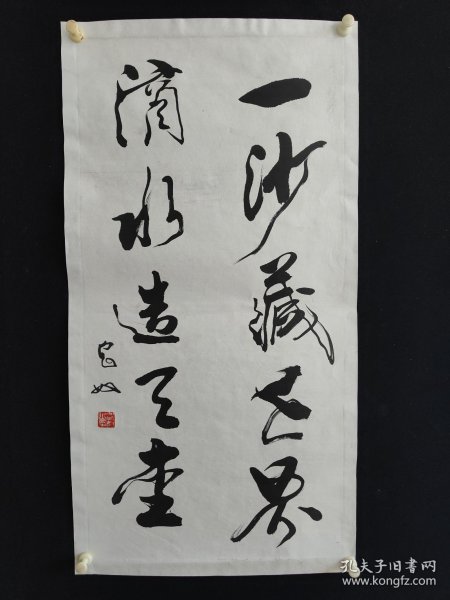 一沙藏世界
滴水造天堂
孔夫子旧书网
www.kongfz.com